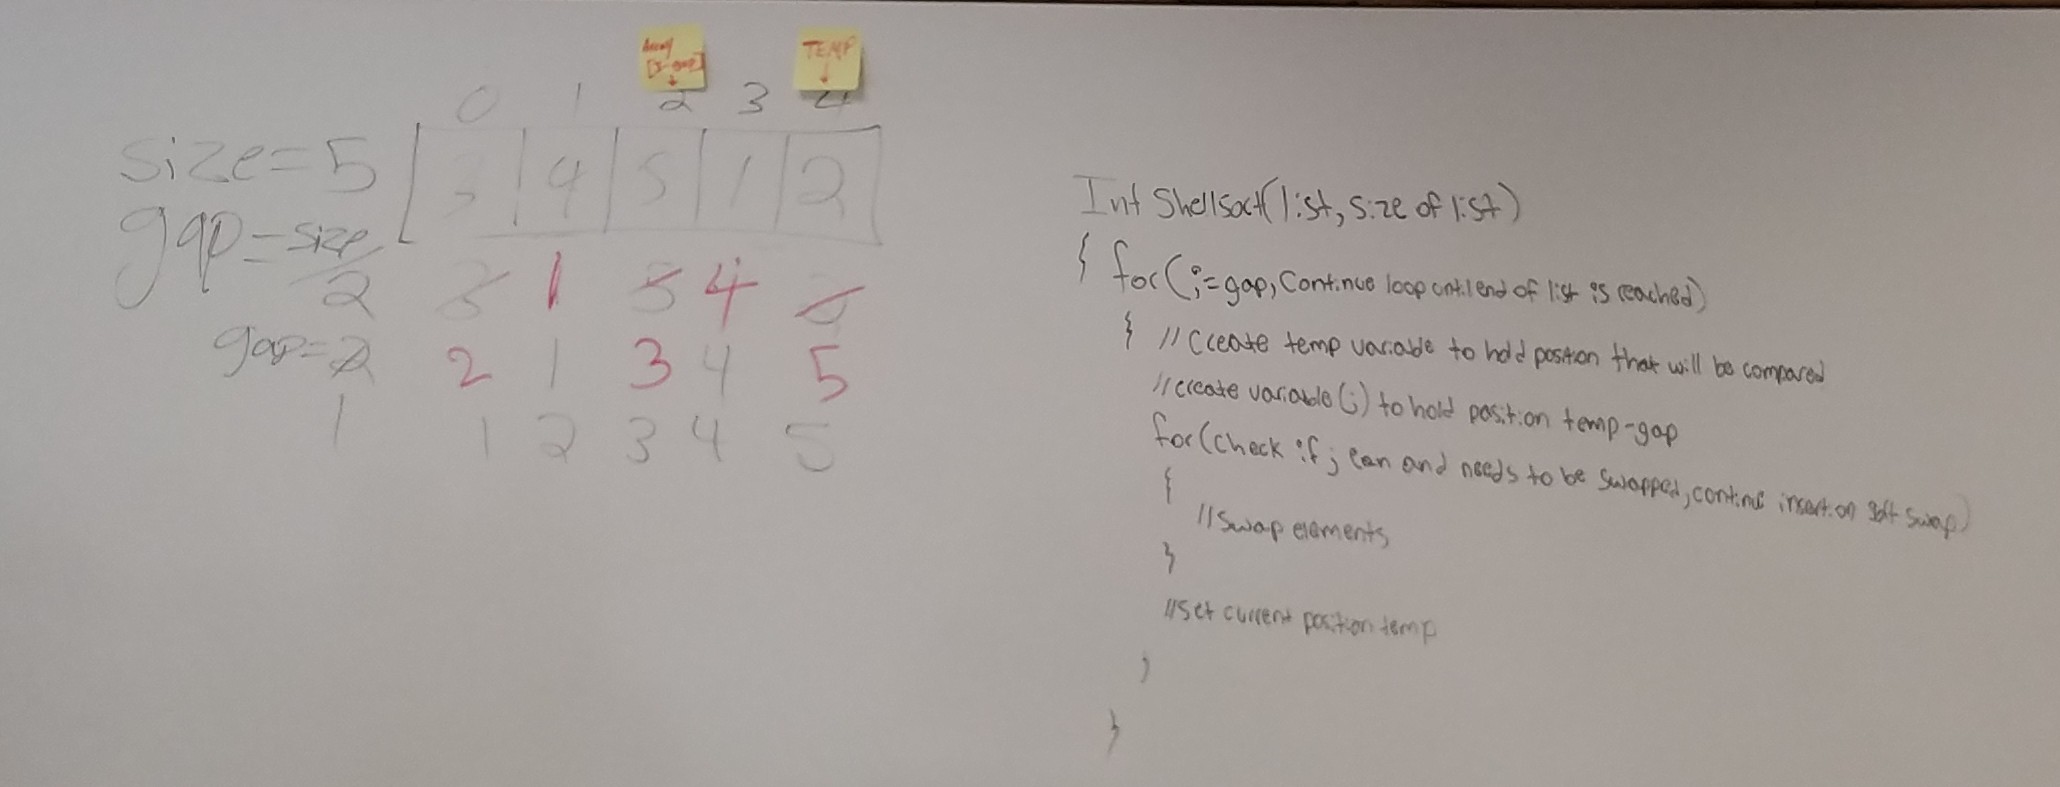 Array TEMP
[J-gap]
↓ ↓
0 1 2 3 4
size=5 3 4 5 1 2
gap=size/2 3 1 5 4 2
gap=2 2 1 3 4 5
1 1 2 3 4 5
Int Shellsort(list, size of list)
{ for(i=gap, Continue loop until end of list is reached)
{ // Create temp variable to hold position that will be compared
// create variable (j) to hold position temp-gap
for(check if j can and needs to be swapped, continue insertion sort swap)
{
//Swap elements
}
//Set current position temp
}
}